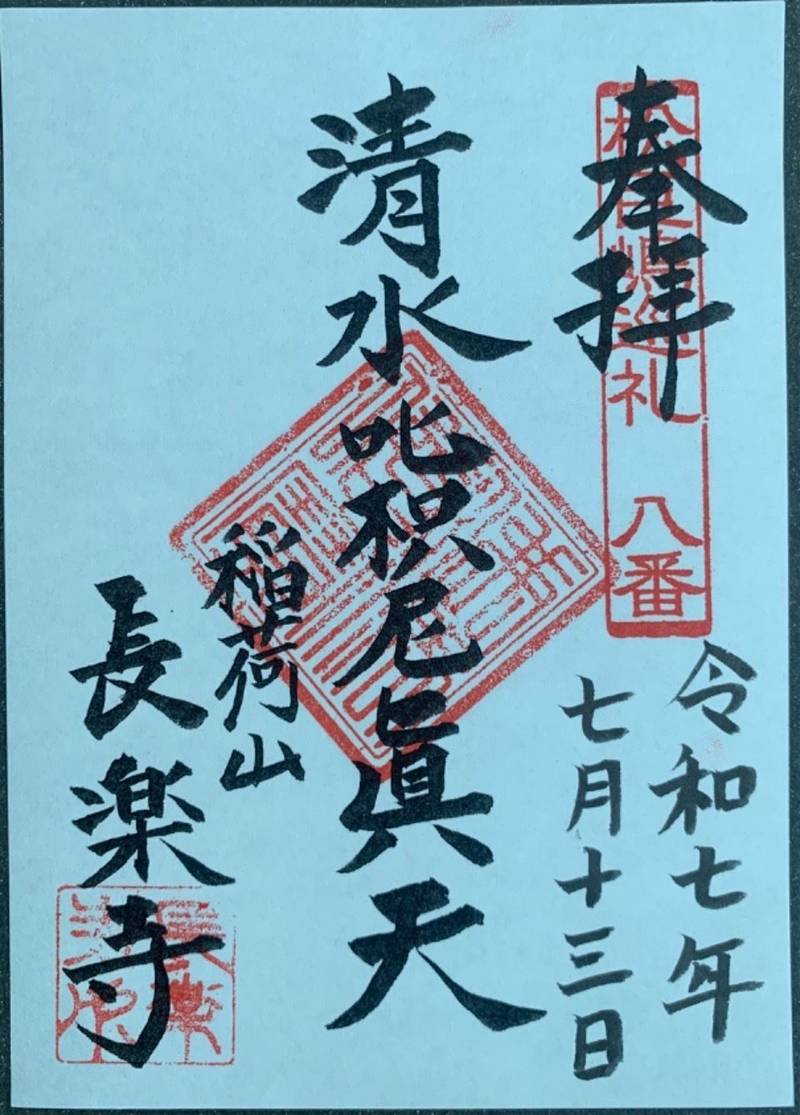 奉拝
巡礼 八番
令和七年
七月十三日
清水
叱枳尼眞天
稲荷山
長楽寺